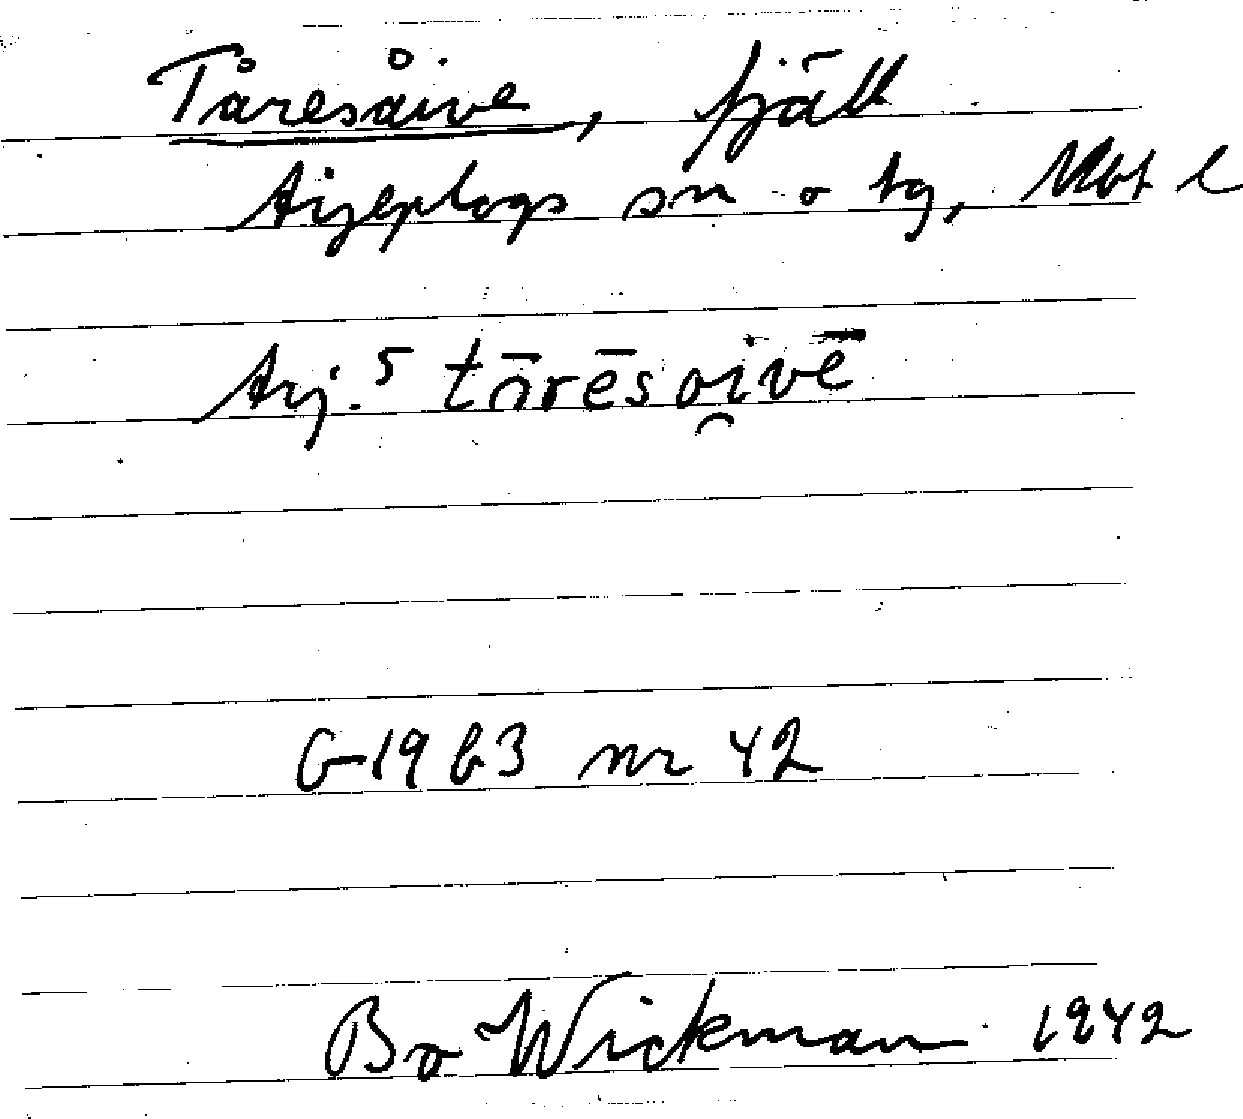 Tåresåive, fjäll
Arjeplogs sn o tg, Nbt l
Arj.5 tōrēsoi̯vē
G-1963 nr 42
Bo Wickman 1942